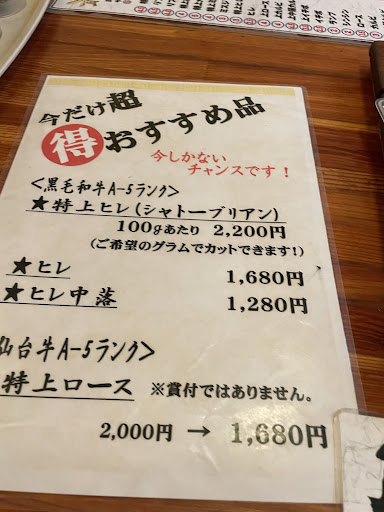 今だけ超
得おすすめ品
今しかない
チャンスです！
<黒毛和牛A-5ランク>
★特上ヒレ(シャトーブリアン)
100gあたり 2,200円
(ご希望のグラムでカットできます!)
★ヒレ 1,680円
★ヒレ中落 1,280円
仙台牛A-5ランク>
特上ロース ※賞付ではありません。
2,000円 → 1,680円